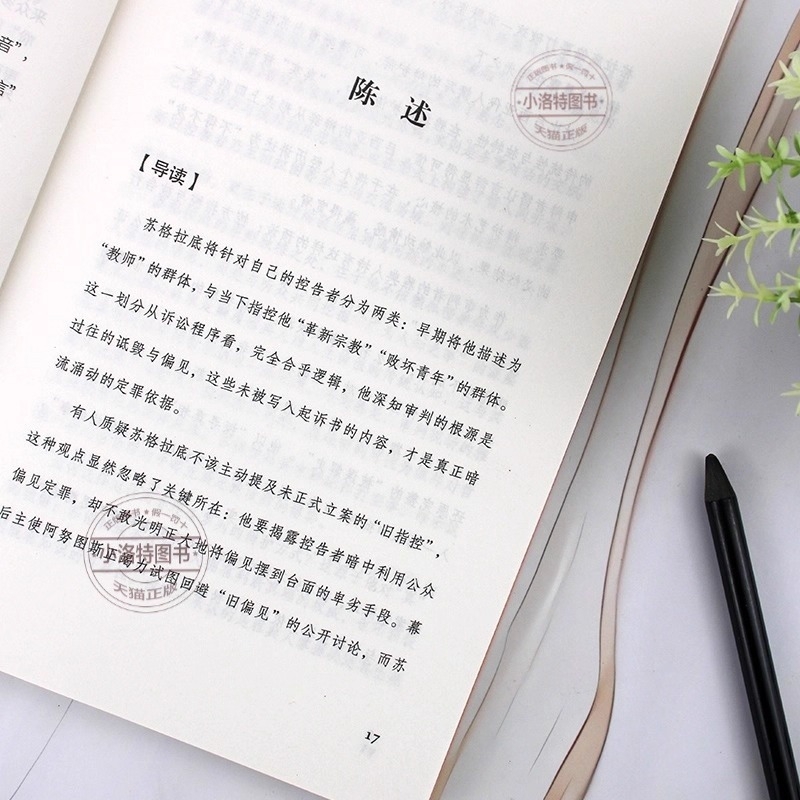 音”,
言”
陈述
【导读】
苏格拉底将针对自己的控告者分为两类：早期将他描述为
“教师”的群体，与当下指控他“革新宗教”“败坏青年”的群体。
这一划分从诉讼程序看，完全合乎逻辑，他深知审判的根源是
过往的诋毁与偏见，这些未被写入起诉书的内容，才是真正暗
流涌动的定罪依据。
有人质疑苏格拉底不该主动提及未正式立案的“旧指控”，
这种观点显然忽略了关键所在：他要揭露控告者暗中利用公众
偏见定罪，却不敢光明正大地将偏见摆到台面的卑劣手段。幕
后主使阿努图斯正竭力试图回避“旧偏见”的公开讨论，而苏
17
正版图书 假一罚十
小洛特图书
天猫正版
正版图书 假一罚十
小洛特图书
天猫正版